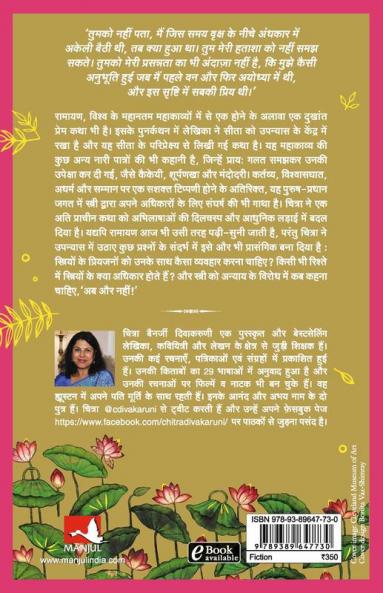 ‘तुमको नहीं पता, मैं जिस समय वृक्ष के नीचे अंधकार में
अकेली बैठी थी, तब क्या हुआ था। तुम मेरी हताशा को नहीं समझ
सकते। तुमको मेरी प्रसन्नता का भी अंदाज़ा नहीं है, कि मुझे कैसी
अनुभूति हुई जब मैं पहले वन और फिर अयोध्या में थी,
और इस सृष्टि में सबकी प्रिय थी।’
रामायण, विश्व के महानतम महाकाव्यों में से एक होने के अलावा एक दुखांत
प्रेम कथा भी है। इसके पुनर्कथन में लेखिका ने सीता को उपन्यास के केंद्र में
रखा है और यह सीता के परिप्रेक्ष्य से लिखी गई कथा है। यह महाकाव्य की
कुछ अन्य नारी पात्रों की भी कहानी है, जिन्हें प्राय: गलत समझकर उनकी
उपेक्षा कर दी गई, जैसे कैकेयी, शूर्पणखा और मंदोदरी। कर्तव्य, विश्वासघात,
अधर्म और सम्मान पर एक सशक्त टिप्पणी होने के अतिरिक्त, यह पुरुष-प्रधान
जगत में स्त्री द्वारा अपने अधिकारों के लिए संघर्ष की भी गाथा है। चित्रा ने एक
अति प्राचीन कथा को अभिलाषाओं की दिलचस्प और आधुनिक लड़ाई में बदल
दिया है। यद्यपि रामायण आज भी उसी तरह पढ़ी-सुनी जाती है, परंतु चित्रा ने
उपन्यास में उठाए कुछ प्रश्नों के संदर्भ में इसे और भी प्रासंगिक बना दिया है :
स्त्रियों के प्रियजनों को उनके साथ कैसा व्यवहार करना चाहिए? किसी भी रिश्ते
में स्त्रियों के क्या अधिकार होते हैं? और स्त्री को अन्याय के विरोध में कब कहना
चाहिए, ‘अब और नहीं!’
चित्रा बैनर्जी दिवाकरुणी एक पुरस्कृत और बेस्टसेलिंग
लेखिका, कवियित्री और लेखन के क्षेत्र से जुड़ी शिक्षक हैं।
उनकी कई रचनाएँ, पत्रिकाओं एवं संग्रहों में प्रकाशित हुई
हैं। उनकी किताबों का 29 भाषाओं में अनुवाद हुआ है और
उनकी रचनाओं पर फिल्में व नाटक भी बन चुके हैं। वह
ह्यूस्टन में अपने पति मूर्ति के साथ रहती हैं। इनके आनंद और अभय नाम के दो
पुत्र हैं। चित्रा @cdivakaruni से ट्वीट करती हैं और उन्हें अपने फ़ेसबुक पेज
https://www.facebook.com/chitradivakaruni पर पाठकों से जुड़ना पसंद है।
MANJUL
www.manjulindia.com
eBook
available
ISBN 978-93-89647-73-0
9 789389 647730
Fiction ₹350
Cover image: Cleveland Museum of Art
Cover design: Bonita Vaz-Shimray